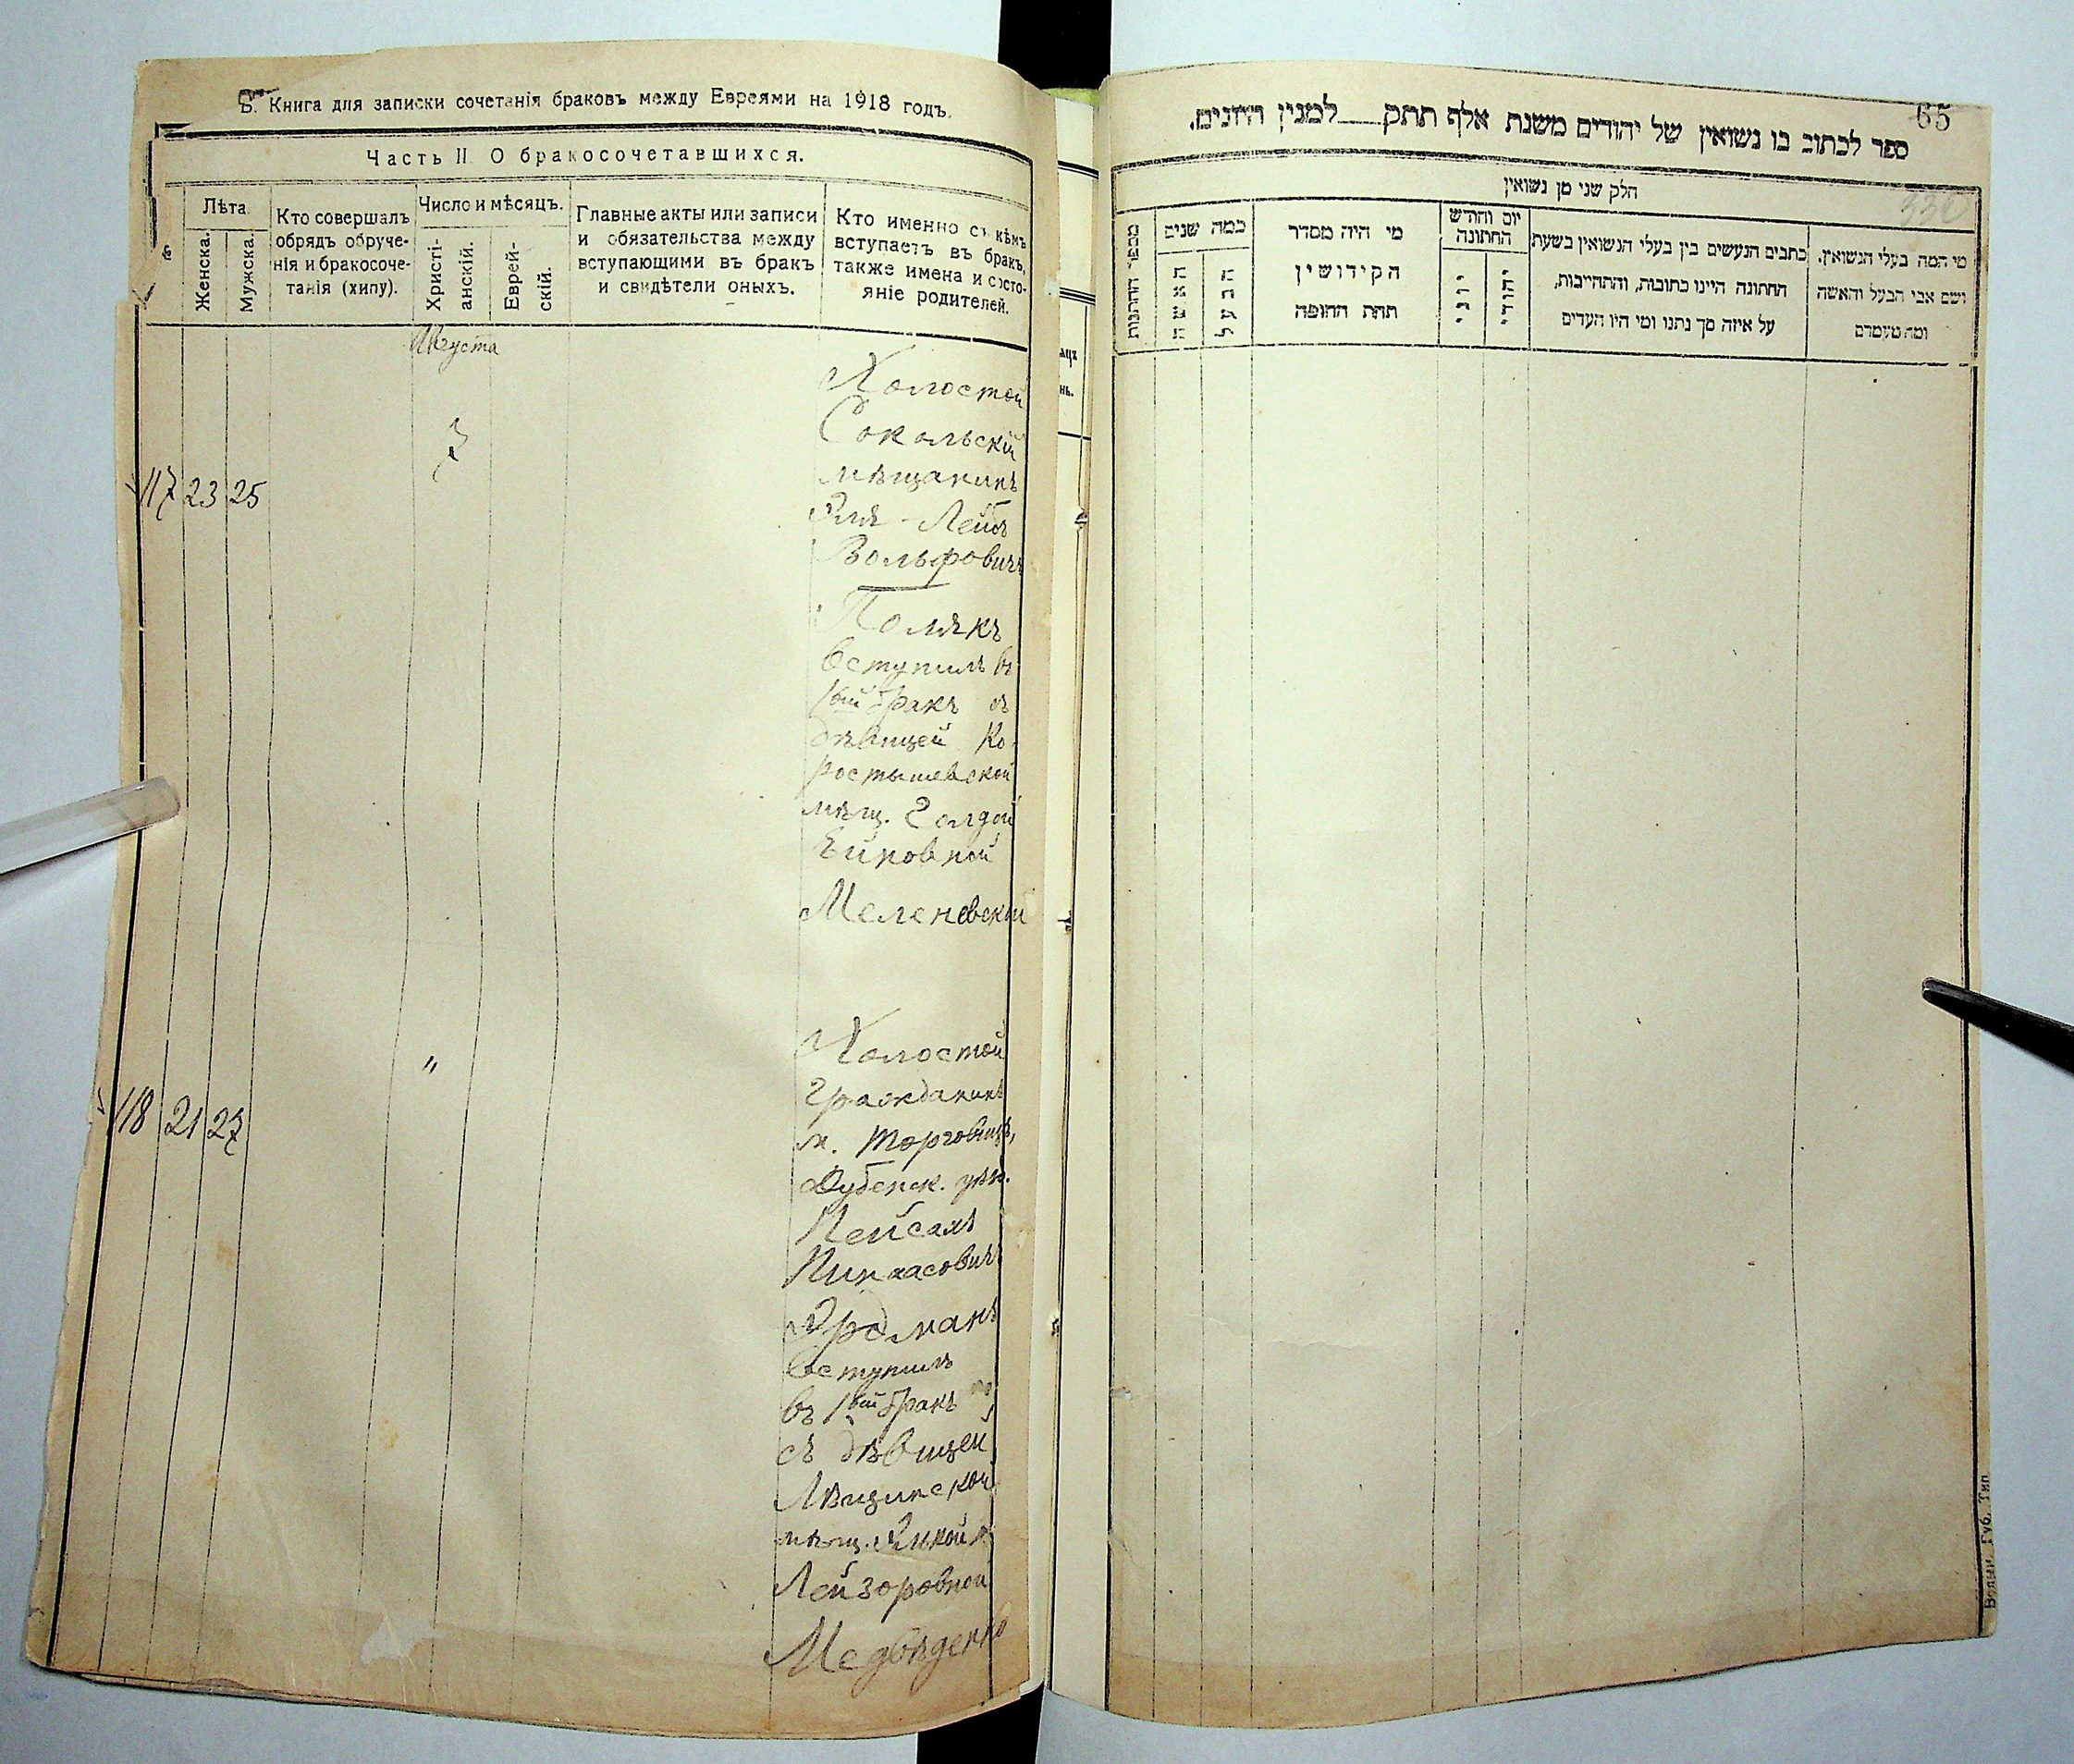 Б. Книга для записки сочетанія браковъ между Евреями на 1918 годъ.
Часть II О бракосочетавшихся.
Лѣта
Женска.
Мужска.
Кто совершалъ
обрядъ обруче-
нія и бракосоче-
танія (хипу).
Число и мѣсяцъ.
Христі-
анскій.
Еврей-
скій.
Главные акты или записи
и обязательства между
вступающими въ бракъ
и свидѣтели оныхъ.
Кто именно съ кѣмъ
вступаетъ въ бракъ,
также имена и состо-
яніе родителей.
Августа
117 23 25
7
Холостой
Сокольскій
мѣщанинъ
Эля-Лейбъ
Вольфовичъ
Полякъ
вступилъ въ
1ый бракъ съ
дѣвицей Ко-
ростышевской
мѣщ. Голдой
Меленевской
118 21 27
"
Холостой
Гражданинъ
м. Торговицы,
Дубенск. уѣз.
Пейсахъ
Пинхасовичъ
вступилъ
въ 1ый бракъ
съ дѣвицей
Лейзоровной
Медвѣденко
65
ספר לכתוב בו נשואין של יהודים משנת אלף תתק למנין היונים.
חלק שני מן נשואין
330
מספר החתונות
כמה שנים
האשה
הבעל
מי היה מסדר
הקידושין
תחת החופה
יום וחודש
החתונה
יוני
יהודי
כתבים הנעשים בין בעלי הנשואין בשעת
החתונה היינו כתובות, והתחייבות,
על איזה סך נתנו ומי היו העדים
מי המה בעלי הנשואין.
ושם אבי הבעל והאשה
ומה מעמדם
Волын. Губ. Тип.